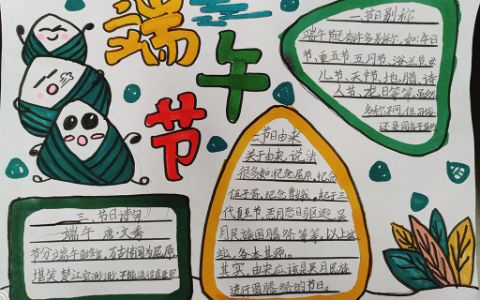 端午节
一.节日别称
端午节有许多别称,如:午日
节、重五节、五月节、浴兰节、女
儿节、天中节、地腊、诗
人节、
名称不同,但
还是同
二.节日由来
关于由来,说法
很多如:纪念屈原,纪念
伍子胥,纪念曹娥,起于三
代夏至节,恶月恶日驱避,吴
月民族图腾祭等等,以上这
些,各本其源。
其实,由来应该是吴月民族
进行图腾祭的节日。
三、节日诗句
端午 唐·文秀
节分端午自谁言,万古传闻为屈原,
堪笑楚江空渺渺,不能洗得直臣冤